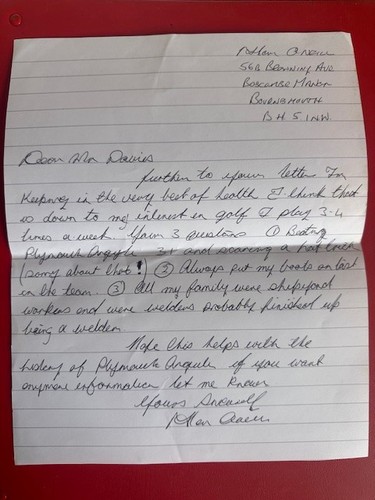 56B Browning Ave
Boscombe Manor
Bournemouth
BH5 1NW
Dear Mr Davies
further to your letter I'm
Keeping in the very best of health I think that
is down to my interest in golf I play 3-4
times a week. Your 3 questions ① Beating
Plymouth Argyle 3-1 and scoring a hat trick
(sorry about that!) ② Always put my boots on last
in the team ③ All my family were shipyard
workers and were welders probably finished up
being a welder
Hope this helps with the
history of Plymouth Argyle if you want
anymore information let me know
Yours Sincerely